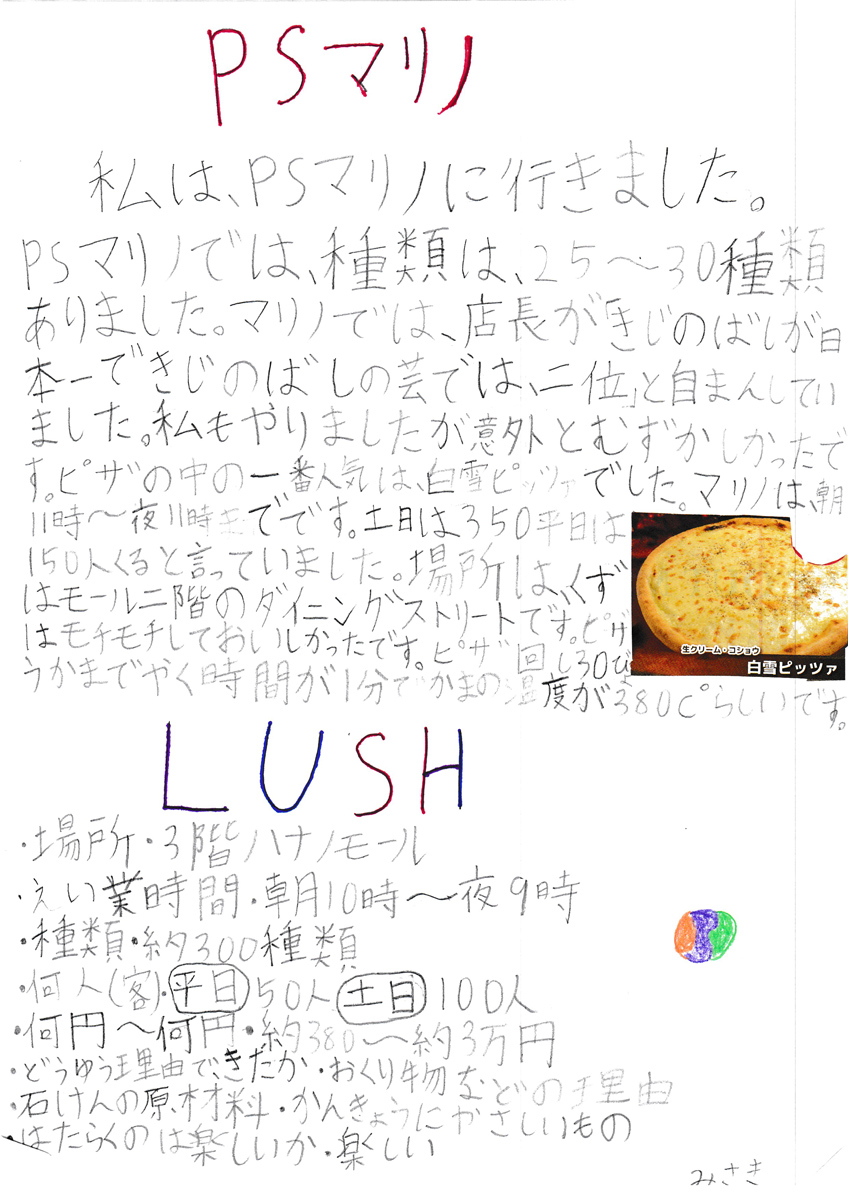 PSマリノ
私は、PSマリノに行きました。
PSマリノでは、種類は、25〜30種類
ありました。マリノでは、店長が「きじのばしが日
本一できじのばしの芸では、二位」と自まんしてい
ました。私もやりましたが意外とむずかしかったで
す。ピザの中の一番人気は、白雪ピッツァでした。マリノは、朝
11時〜夜11時までです。土日は350平日は
150人くると言っていました。場所は、くず
はモール二階のダイニングストリートです。ピザ
はモチモチしておいしかったです。ピザ1回し30びょ
うかまでやく時間が1分でかまの温度が380℃らしいです。
生クリーム・コショウ
白雪ピッツァ
LUSH
・場所・3階ハナノモール
・えい業時間・朝10時〜夜9時
・種類・約300種類
・何人(客)・平日50人 土日100人
・何円〜何円・約380〜約3万円
・どうゆう理由で、きたか・おくり物などの理由
・石けんの原材料・かんきょうにやさしいもの
・はたらくのは楽しいか・楽しい
みさき